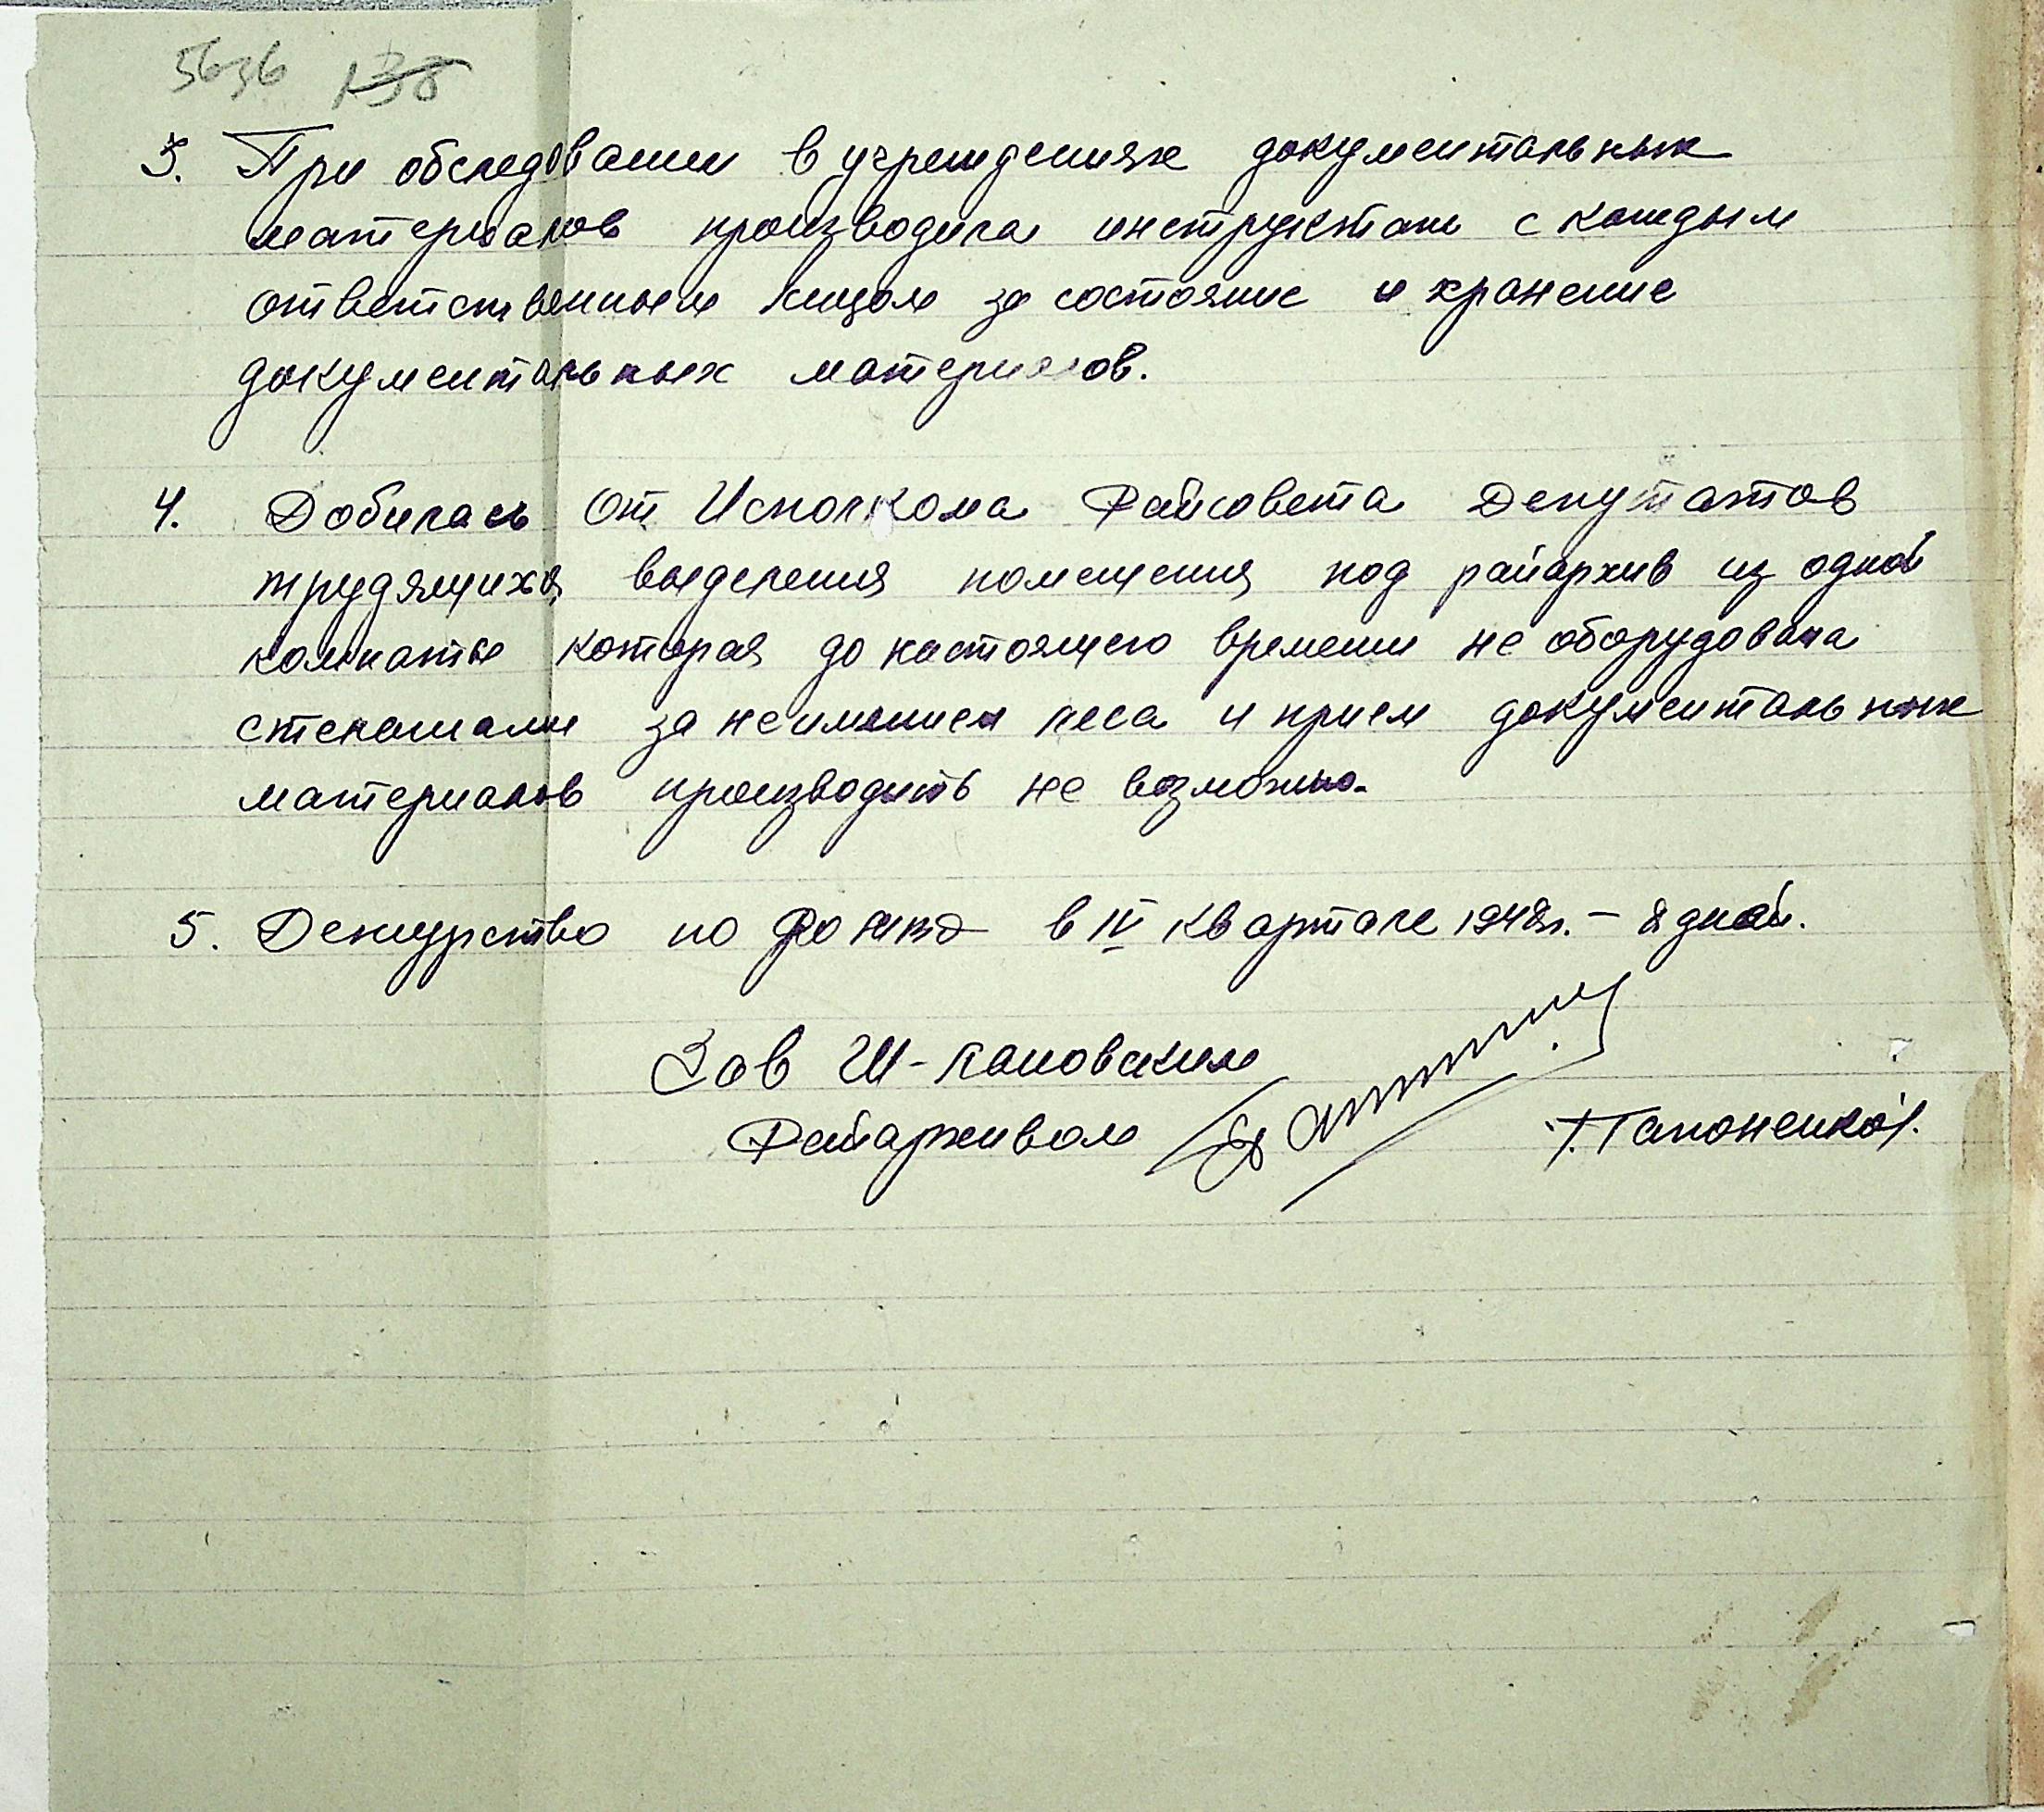 5636 138
3. При обследовании в учреждениях документальных
материалов производила инструктаж с каждым
ответственным лицом за состояние и хранение
документальных материалов.
4. Добилась от Исполкома Райсовета Депутатов
трудящихся выделения помещения под райархив из одной
комнаты которая до настоящего времени не оборудована
стелажами за неимением леса и прием документальных
материалов производить не возможно.
5. Дежурство по РО МВД в IV квартале 1948г. – 8 дней.
Зав Ш-лановским
Райархивом /Гапоненко/.